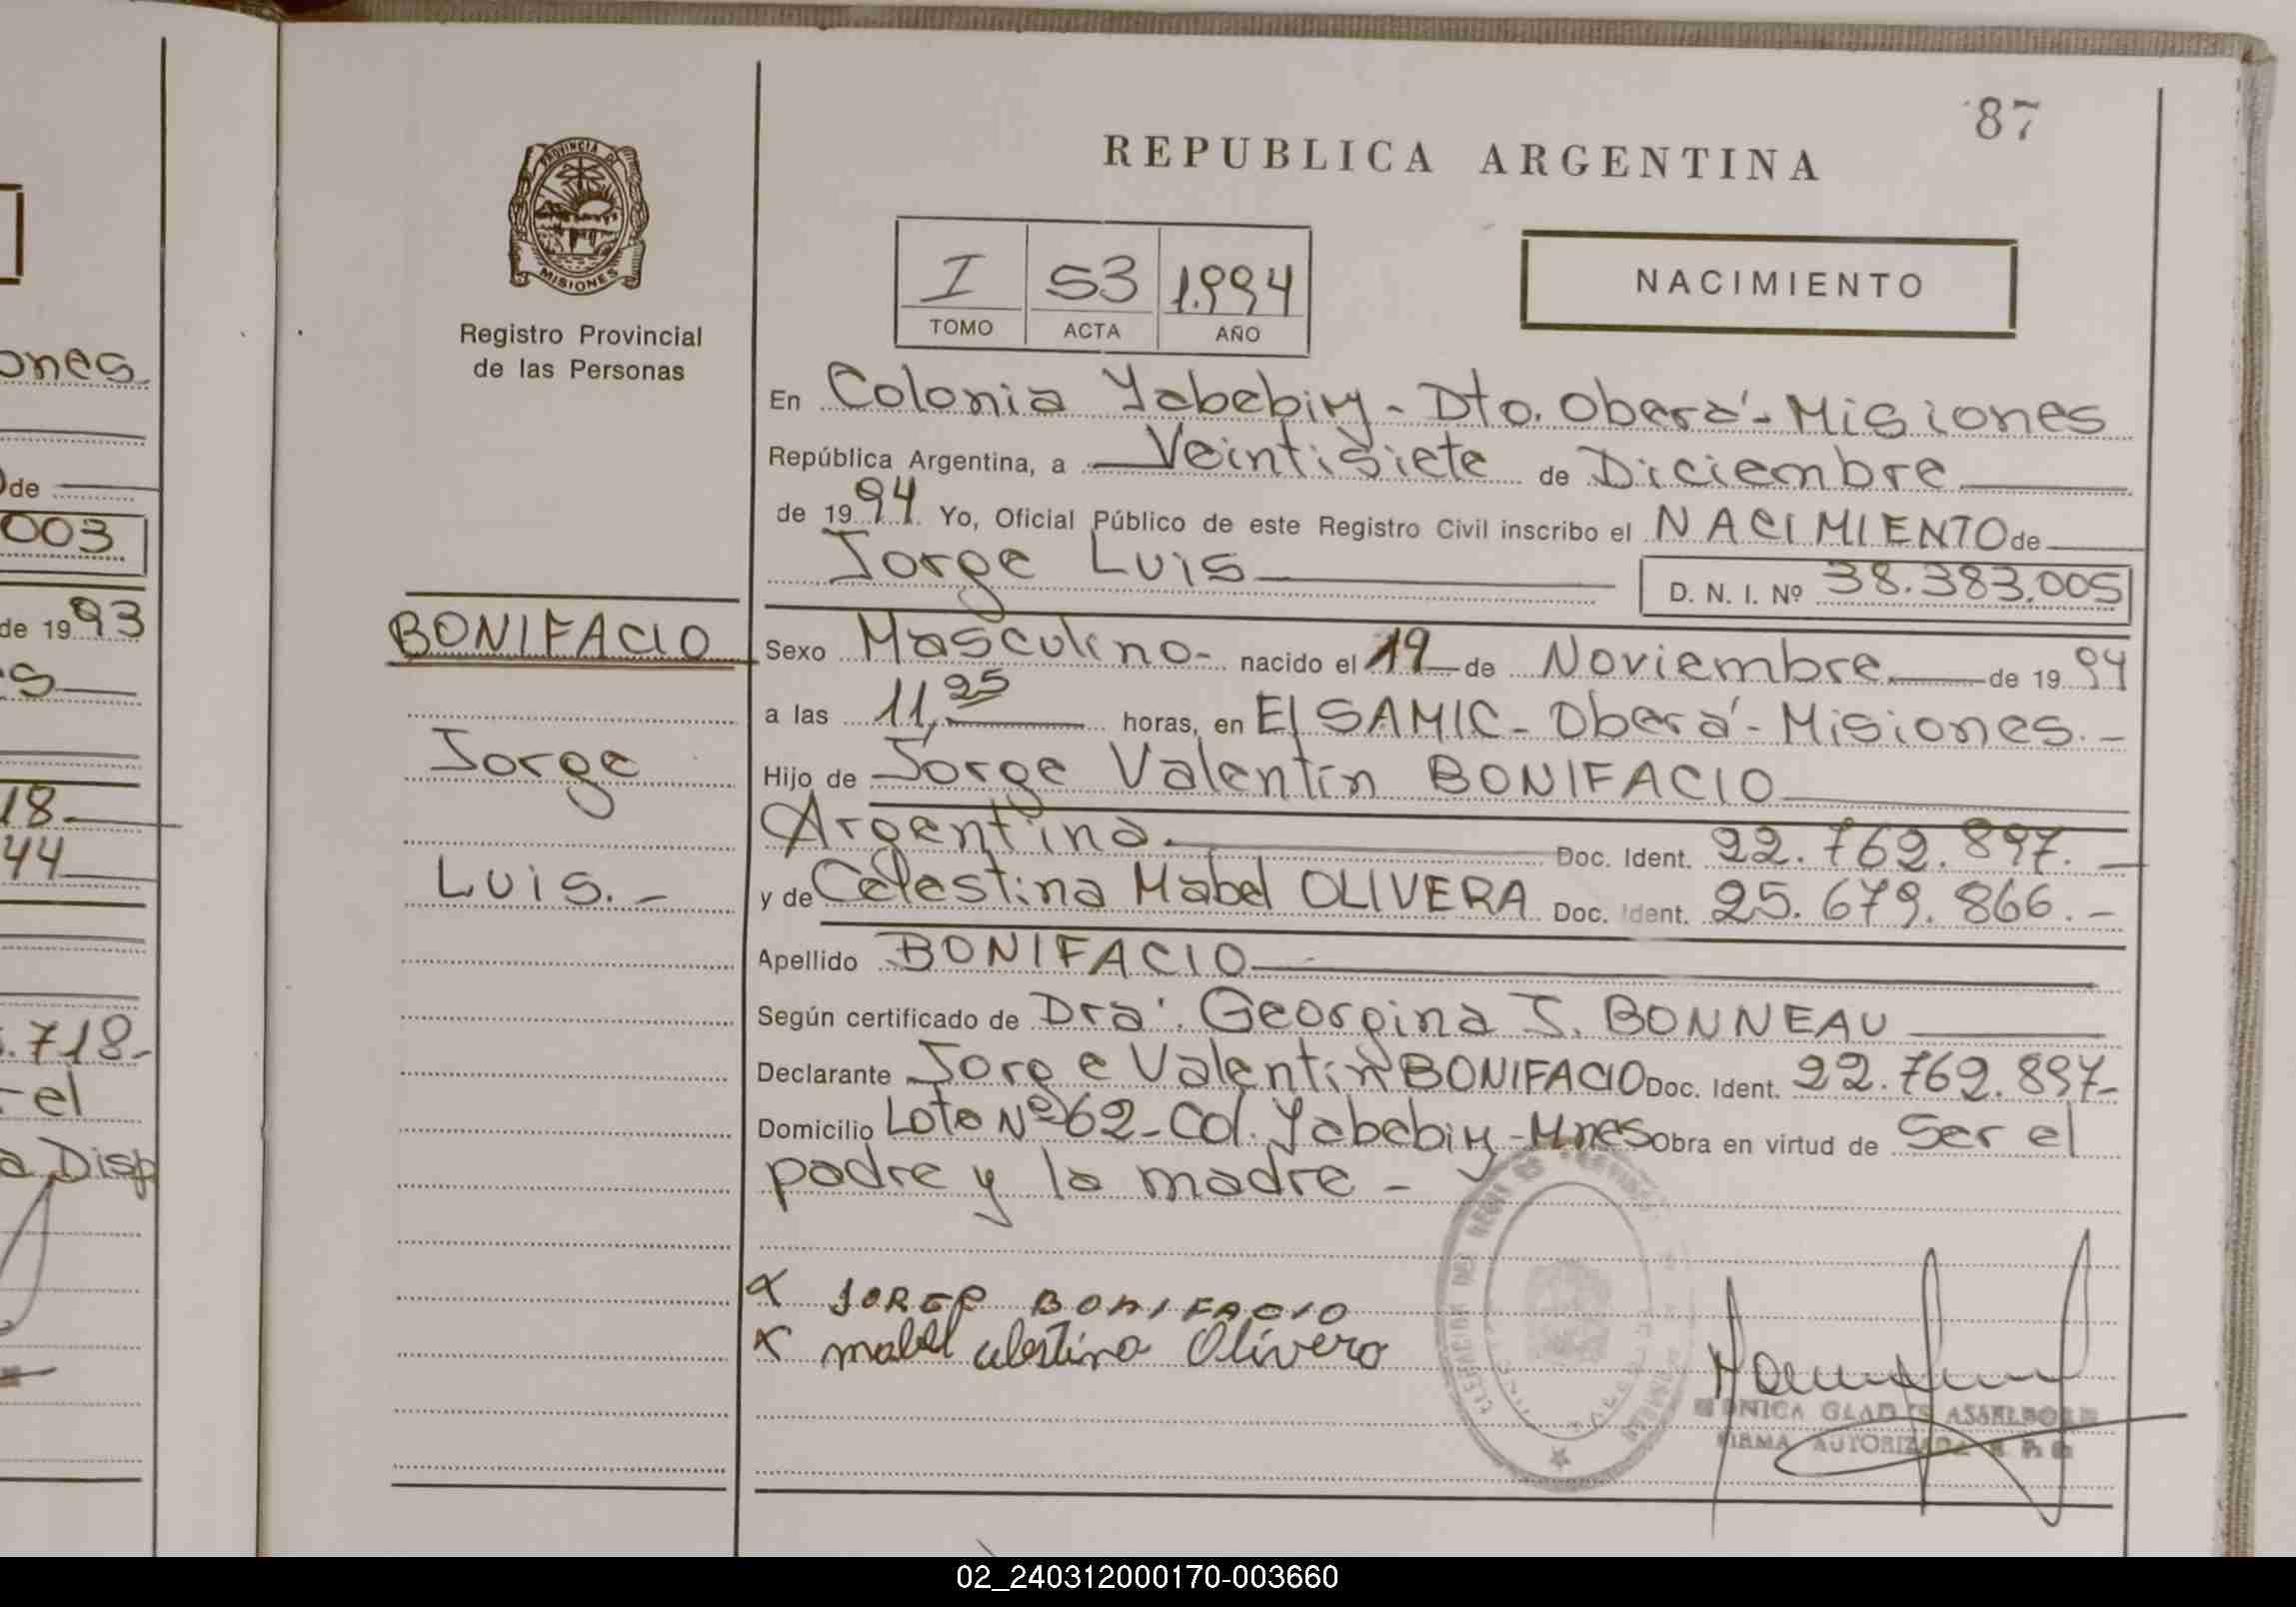 87
REPUBLICA ARGENTINA
PROVINCIA DE
MISIONES
Registro Provincial
de las Personas
I 53 1.994
TOMO ACTA AÑO
NACIMIENTO
En Colonia Yabebiry - Dto. Oberá - Misiones
República Argentina, a Veintisiete de Diciembre
de 1994 Yo, Oficial Público de este Registro Civil inscribo el NACIMIENTO de
Jorge Luis D. N. I. Nº 38.383.005
BONIFACIO
Jorge
Luis. -
Sexo Masculino - nacido el 19 de Noviembre. de 1994
a las 11,25 horas, en El SAMIC - Oberá - Misiones. -
Hijo de Jorge Valentín BONIFACIO
Argentina. Doc. Ident. 22.762.897. -
y de Celestina Mabel OLIVERA Doc. Ident. 25.679.866. -
Apellido BONIFACIO
Según certificado de Dra. Georgina J. BONNEAU
Declarante Jorge Valentín BONIFACIO Doc. Ident. 22.762.897-
Domicilio Loto Nº 62 - Col. Yabebiry - Mnes Obra en virtud de Ser el
padre y la madre -
x JORGE BONIFACIO
x mabel celestina Olivera
GLADYS
FIRMA AUTORIZADA
ones
de
003
de 1993
s
18
44
.718-
el
a Disp
02_240312000170-003660